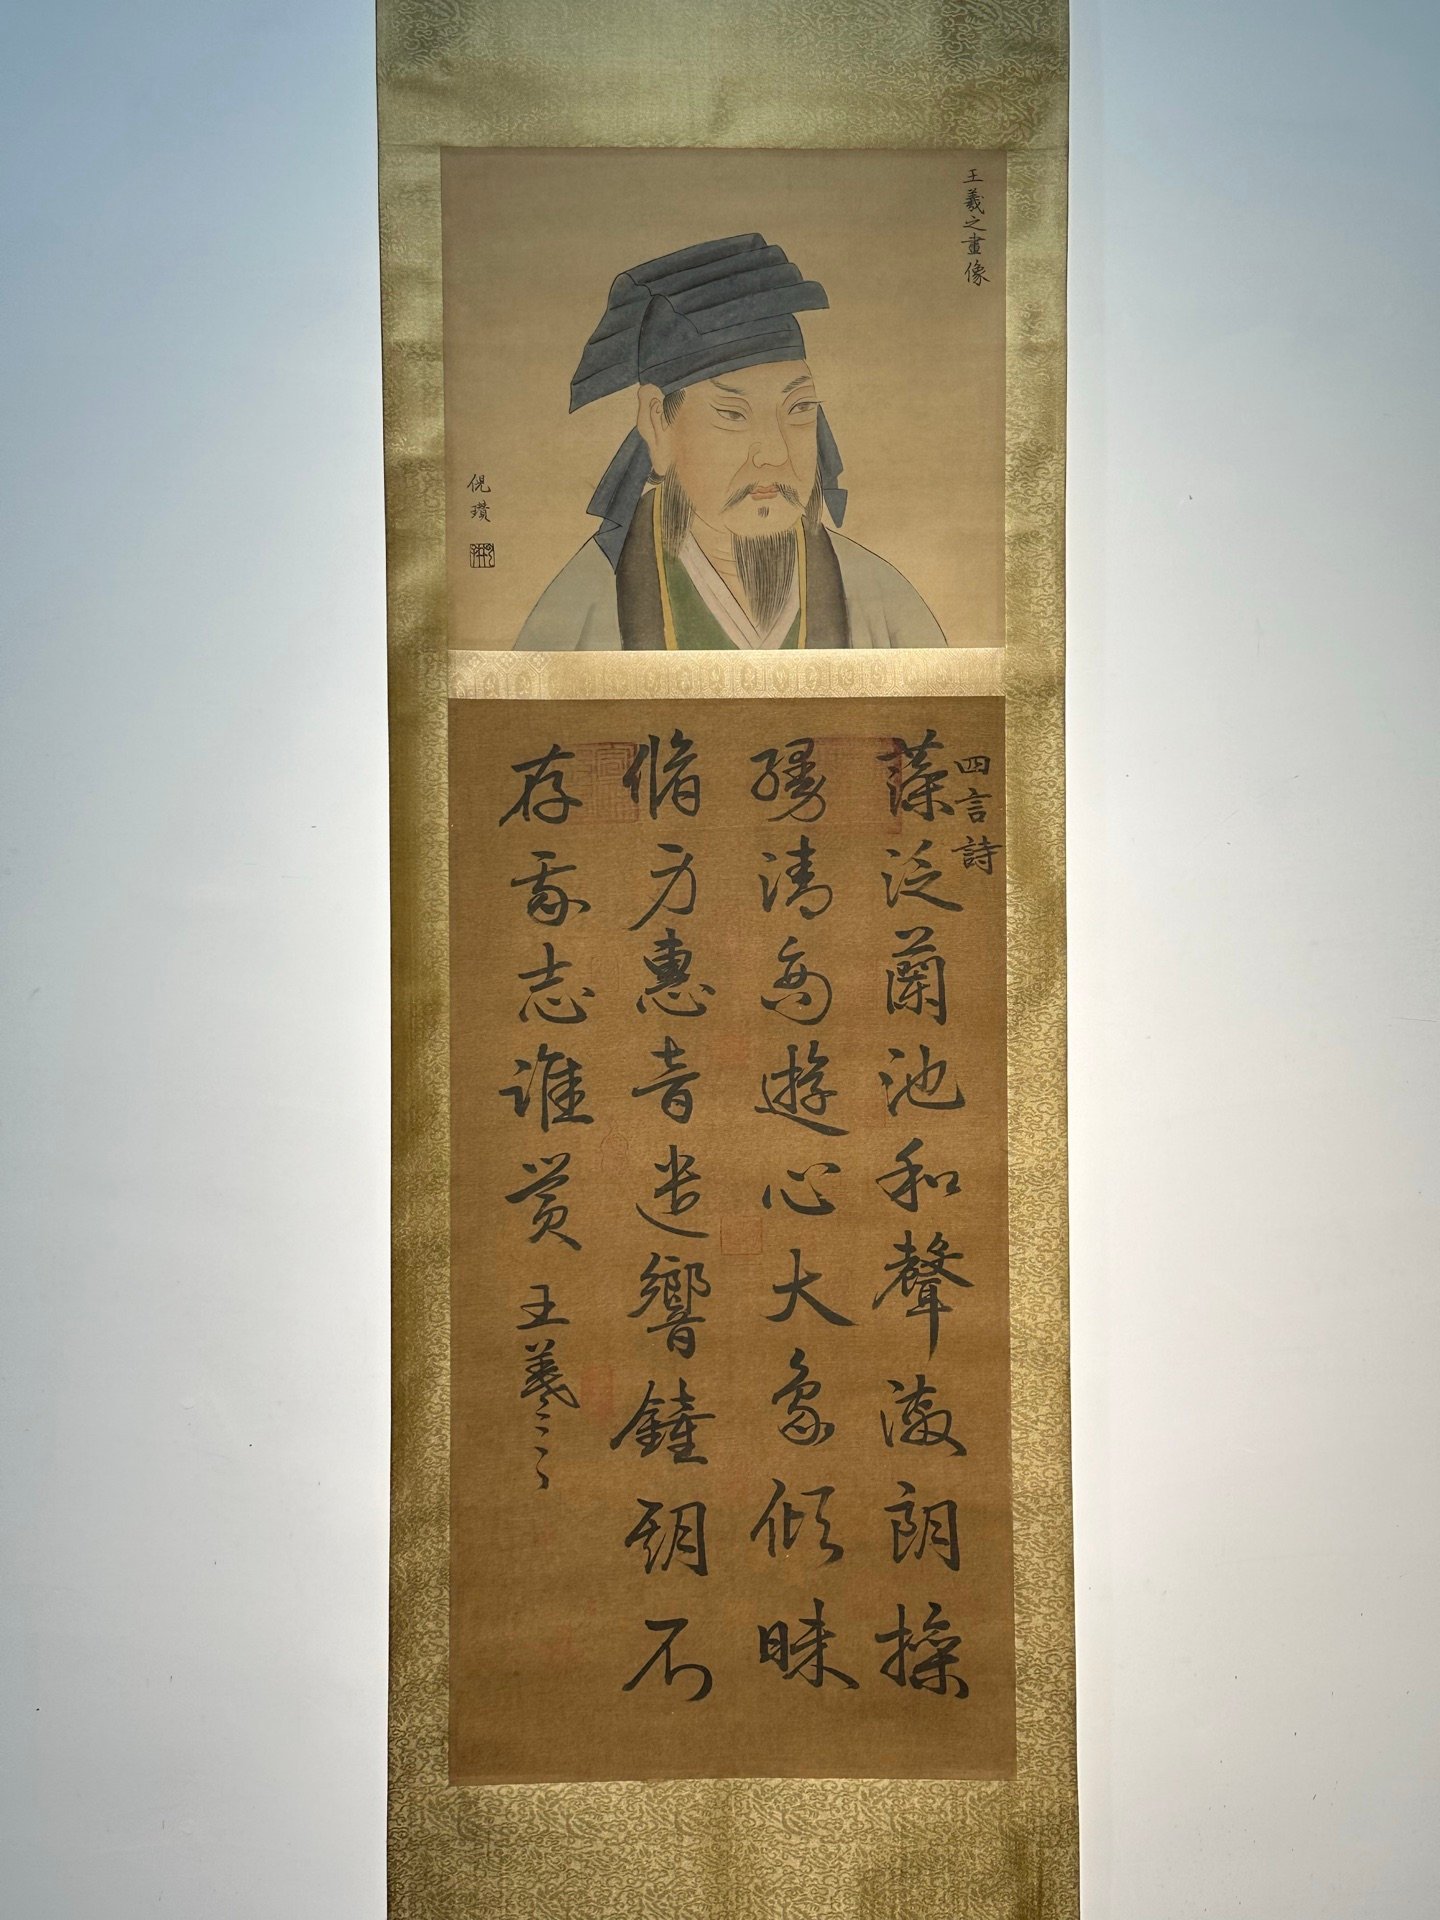 王羲之畫像
倪瓚
四言詩
藻泛蘭池和聲激朗操
縵清商遊心大象傾昧
脩身惠音遺響鐘期不
存我志誰賞
王羲之